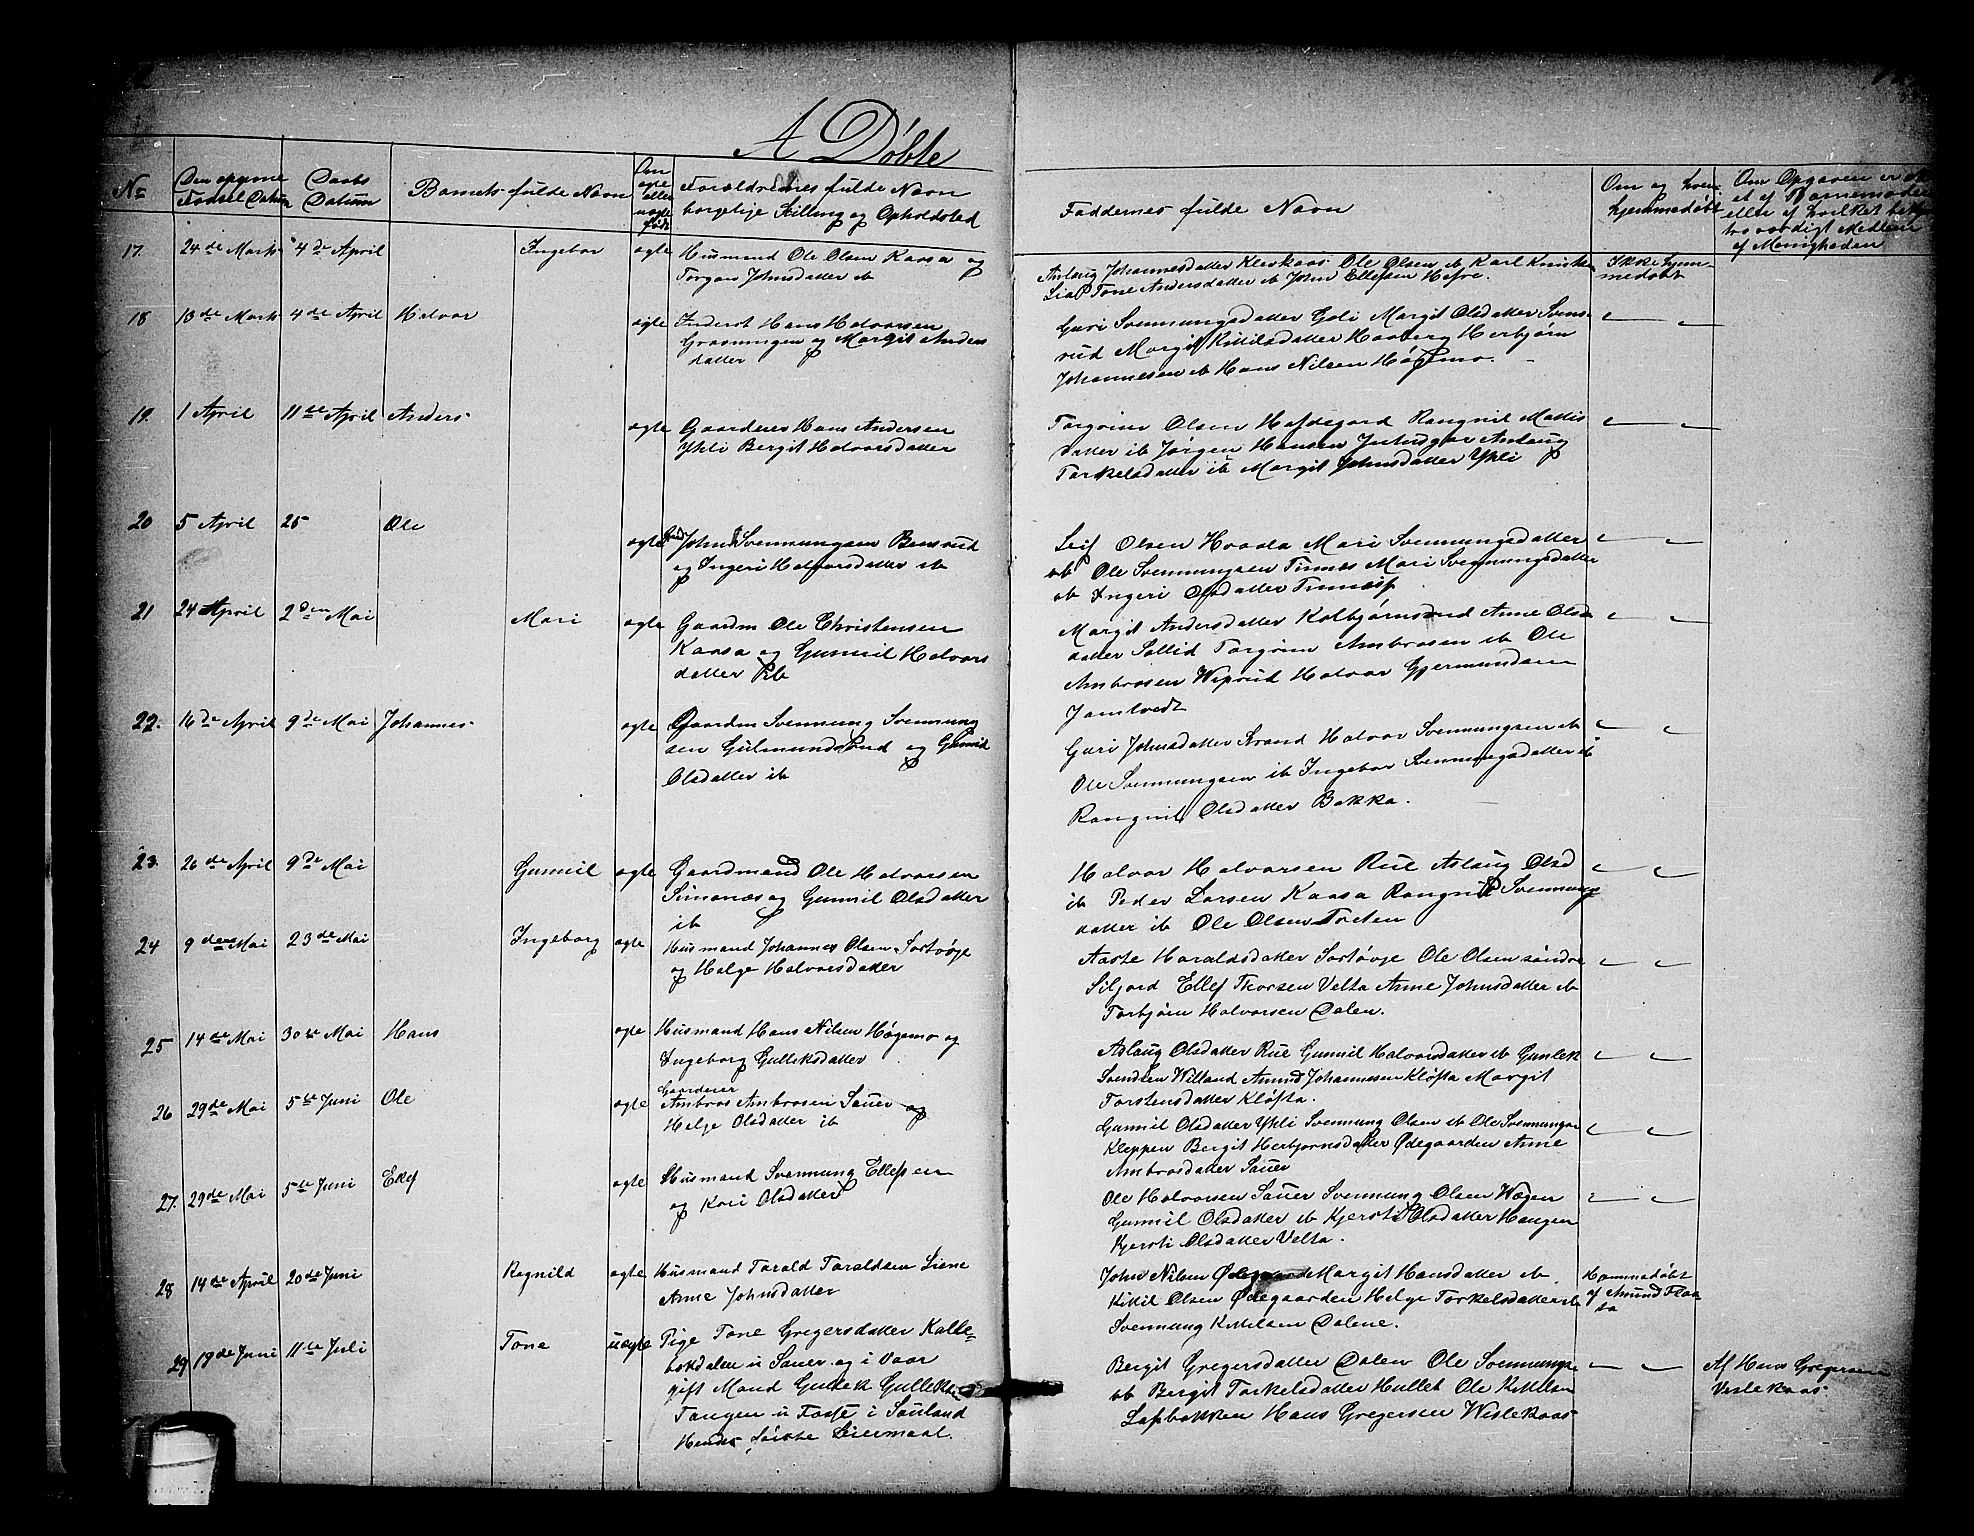 A Døbte
No
Den opgivne
Fødsel Datum
Daabs
Datum
Barnets fulde Navn
Om
ægte
eller
uægte
født
Forældrenes fulde Navn
borgelige Stilling og Opholdsted
Faddernes fulde Navn
Om og hvem
hjemmedøbt
Om Opgaven er
et af Barnemoder
eller af hvilket
troværdigt Medlem
af Menigheden
17. 24de Marts 4de April Ingebor ægte Husmand Ole Olsen Kaasa og
Torgon Johnsdatter ib
Aslaug Johannesdatter Ole Olsen ib Karl
Lia Tone Andersdatter ib John Ellefsen
Ikke hjem-
medøbt
18 13de Marts 4de April Halvor ægte Inderst Hans Halvorsen
Graaningen og Margit Anders
datter
Guri Svennungsdatter Goli Margit Olsdatter Svens-
rud Margit Kittilsdatter Haaberg Herbjørn
Johannesen ib Hans Nilsen Høgemo.
19. 1 April 11te April Anders ægte Gaarderes Hans Andersen
Ykli Bergit Halvorsdatter
Torgrim Olsen Rangnil Mattis
datter ib Jørgen Hansen Aslaug
Torkelsdatter ib Margit Johnsdatter Ykli
20 5 April 25 Ole ægte John Svennungsen Bensrud
og Ingeri Halvorsdatter ib
Leif Olsen Hvaala Mari Svennungsdatter
ib Ole Svennungsen Tinnes Mari Svennungsdatter
ib Ingeri Olsdatter Tinnes
21 24 April 2den Mai Mari ægte Gaardm Ole Christensen
Kaasa og Gunnil Halvors
datter ib
Margit Andersdatter Kolbjørnsrud Anne Ols
datter Sollid Torgrim Ambrosen ib Ole
Ambrosen Wiprud Halvor Gjermundsen
Jamtvedt
22. 16de April 9de Mai Johannes ægte Gaardm Svennung Svennung
sen Gulmundsrud og Gunnil
Olsdatter ib
Guri Johnsdatter Strand Halvor Svennungsen ib
Ole Svennungsen ib Ingebor Svennungsdatter ib
Rangnil Olsdatter Bakka.
23. 26de April 9de Mai Gunnil ægte Gaardmand Ole Halvorsen
Simones og Gunnil Olsdatter
ib
Halvor Halvorsen Rue Aslaug Olsd
ib Peder Larsen Kaasa Rangnil Svennungs
datter ib Ole Olsen Tveten
24 9den Mai 23de Mai Ingeborg ægte Husmand Johannes Olsen Sortvøge
og Helge Halvorsdatter
Aaste Haraldsdatter Sortøvge Ole Olsen søndre
Siljord Ellef Thorsen Velta Anne Johnsdatter ib
Torbjørn Halvorsen Dalen.
25 14de Mai 30te Mai Hans ægte Husmand Hans Nilsen Høgemo og
Ingeborg Gulleksdatter
Aslaug Olsdatter Rue Gunnil Halvorsdatter ib Gunlek
Svendsen Willand Amund Johannesen Kløfta Margit
Torstensdatter Kløfta.
26 29de Mai 5te Juni Ole ægte Gaardeier
Ambros Ambrosen Sauer og
Helge Olsdatter ib
Gunnil Olsdatter Ykli Svennung Olsen ib Ole Svennungsen
Kleppen Bergit Herbjornsdatter Ødegaarden Anne
Ambrosdatter Sauer
27. 29de Mai 5te Juni Ellef ægte Husmand Svennung Ellefsen
og Kari Olsdatter
Ole Halvorsen Sauer Svennung Olsen Wægen
Gunnil Olsdatter ib Kjersti Olsdatter Haugen
Kjersti Olsdatter Velta.
28 14de April 20de Juni Ragnild ægte Husmand Torald Toraldsen Liene
Anne Johnsdatter
John Nilsen Margit Hansdatter ib.
Kittil Olsen Ødegaarden Helge Torkelsdatter ib
Svennung Kittilsen Dalene.
Hjemmedøbt
af Amund Flaa
to
29 19de Juni 11te Juli Tone uægte Pige Tone Gregersdatter Kalle-
bækdalen u Sauer og i Vaar
gift Mand Gullek Gulleksen
Tangen u Fosse i Sauland
Hendes første Leiermaal.
Bergit Gregersdatter Dalen Ole Svennungs
ib Bergit Torkelsdatter Hullet Ole Kittilsen
Lapbakken Hans Gregersen Wislekaas
Af Hans Gregersen
Veslekaas